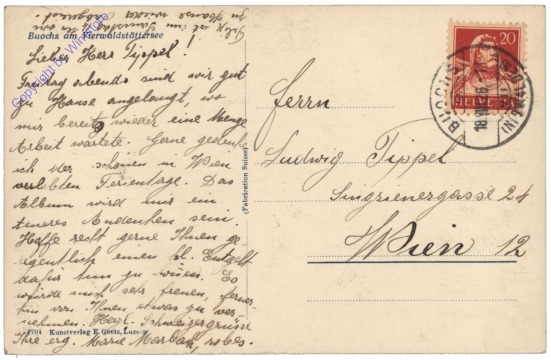 Buochs am Vierwaldstättersee
Lieber Herr Tippel!
Freitag abends sind wir gut
zu Hause angelangt, wo
mir bereits wieder eine Menge
Arbeit wartete. Gerne gedenke
ich der schönen in Wien
verlebten Ferientage. Das
Album wird mir ein
teures Andenken sein.
Hoffe recht gerne Ihnen ge
legentlich einen kl. Entgelt
dafür tun zu
würde mich sehr freuen, ferner
hin von Ihnen etwas zu ver-
nehmen. Herzl. Schweizergrüsse
Ihre erg. Marie
Kunstverlag E. Goetz, Luzern
(Fabrication Suisse)
Copyright by
20
HELVETIA
BUOCHS
Herrn
Ludwig Tippel
Singrienergasse 24
Wien 12